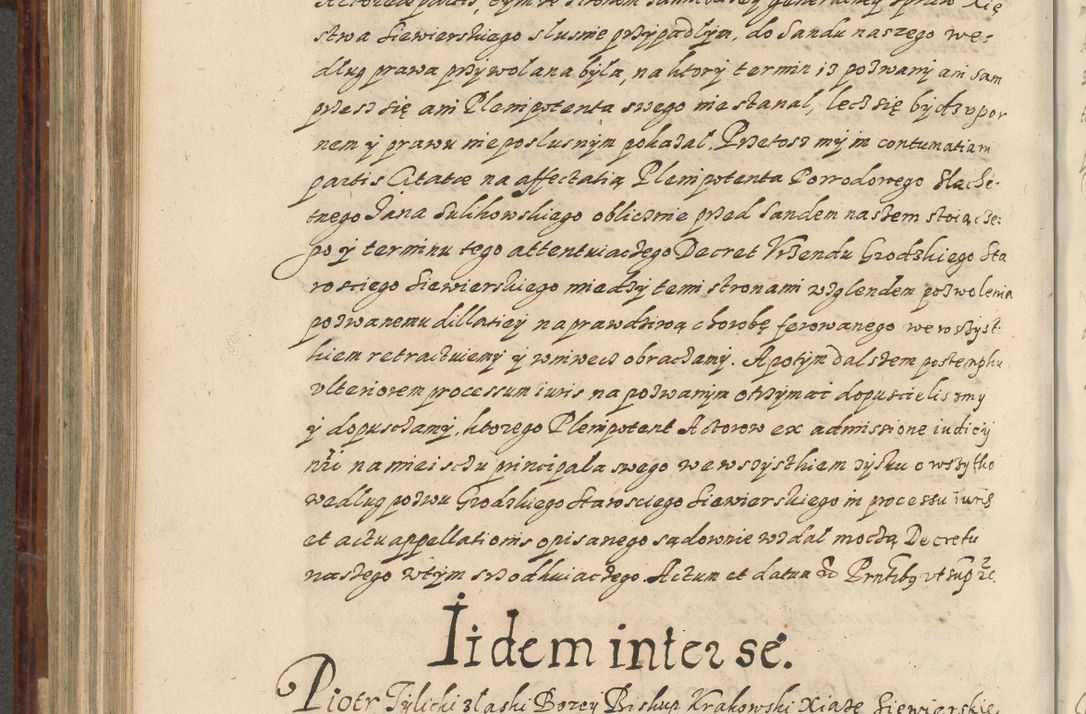 stwa Siewierskiego slusnie przypadłym, do Sandu naszego we-
dług prawa przywolana była, na ktory termin iż pozwany ani sam
przesz się ani Plenipotenta swego nie stanał, lecz się bydz vpor
nem y prawu nieposlusnym pokazał. Przetosz my in contumatiam
partis Citatæ na affectatią Plenipotenta Powodowego Slache-
tnego Jana Sulikowskiego oblicznie przed Sandem naszem stoiącze-
po y terminu tego attentuiaczego Decret Vrzendu Grodzkiego Sta
rosciego Siewierskiego miedzy temi stronami wzglendem pozwolenia
pozwanemu dillatiey na prawdziwą chorobę ferowanego we wszyst-
kiem retractuiemy y wniwecz obraczamy. A potym dalszem postempku
vlteriorem processum iuris na pozwanym otrzymać dopuscielismy
y dopusczamy, ktorego Plenipotent Actorow ex admissione iudicij
nri na mieisczu principala swego we wszystkiem zysku o wszytko
według pozwu Grodzkiego Starosciego Siewierskiego in processu iuris
et actu appellationis opisanego sądownie wzdał moczą Decretu
naszego wtym srzodkuiaczego. Actum et datum vt
Iidem inter se.
Piotr Tylicki z łaski Bozey Biskup Krakowski Xiąze Siewierskie